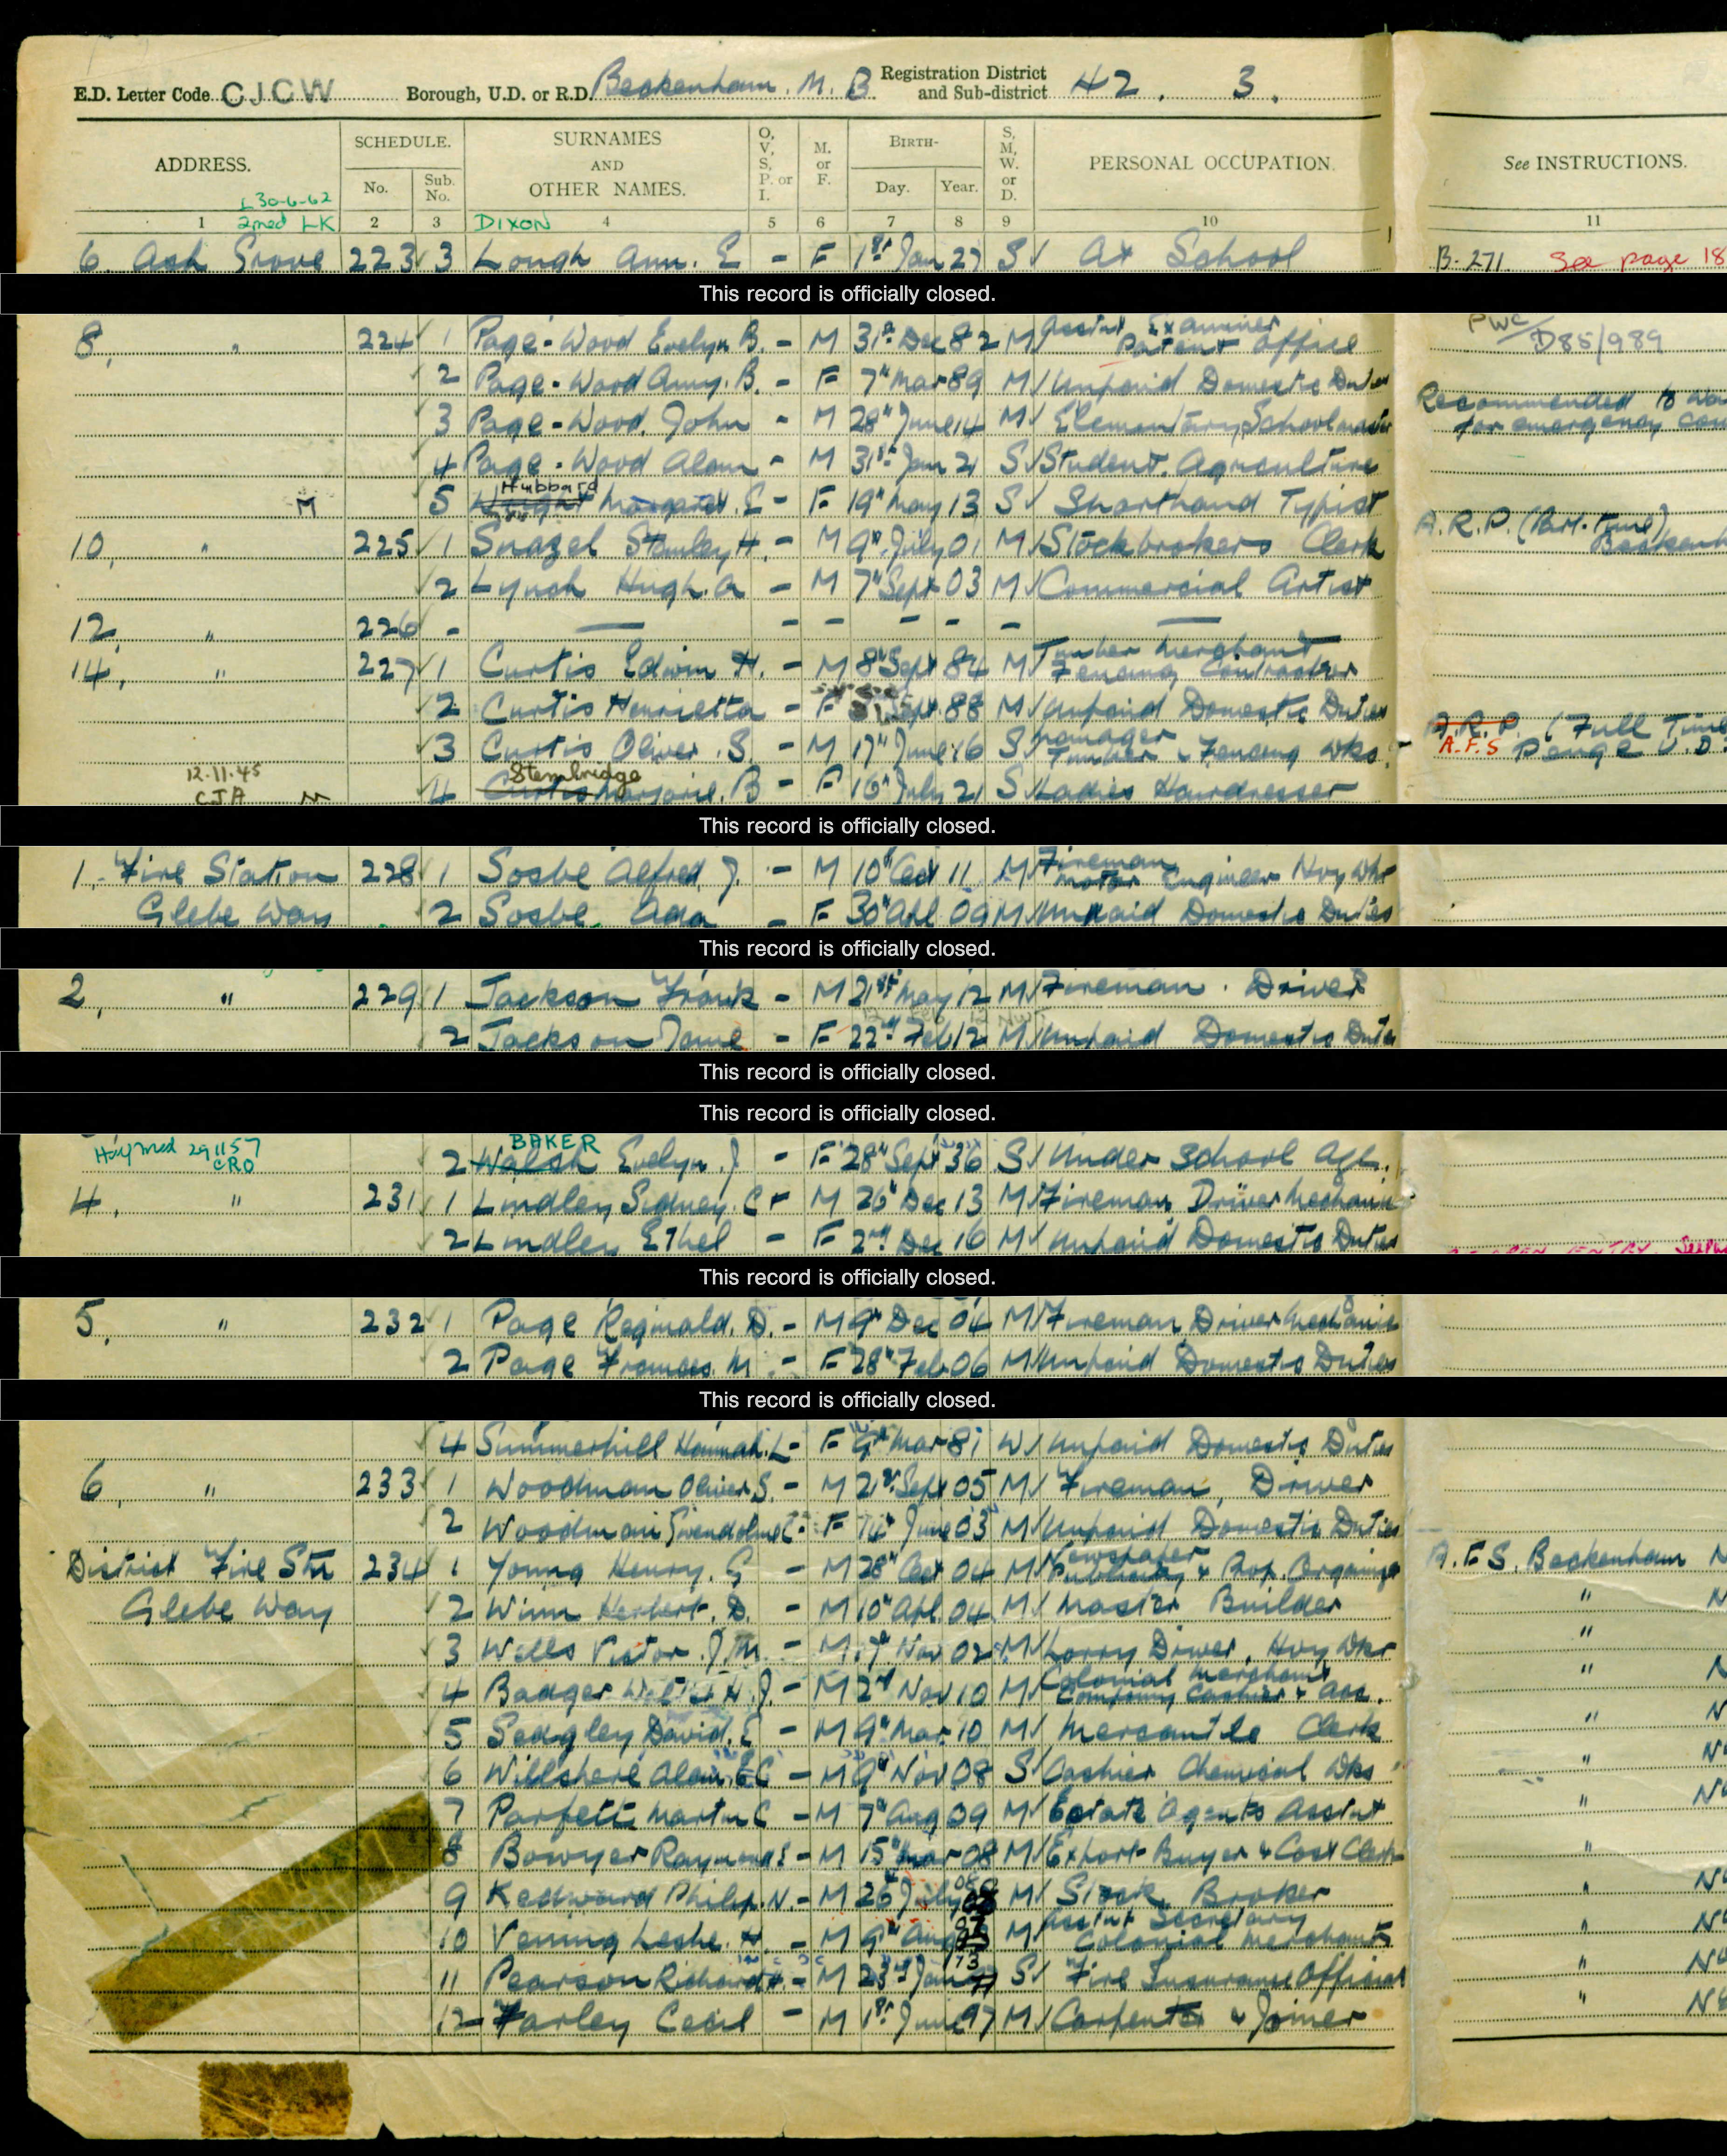 E.D. Letter Code CJCW Borough, U.D. or R.D. Beckenham. M. B Registration District and Sub-district 42. 3.
ADDRESS. SCHEDULE. No. Sub. No. SURNAMES AND OTHER NAMES. O, V, S, P. or I. M. or F. BIRTH- Day. Year. S, M, W. or D. PERSONAL OCCUPATION. See INSTRUCTIONS.
L 30-6-62
1 2med LK 2 3 DIXON 4 5 6 7 8 9 10 11
6. Ash Grove 223 3 Lough Ann. E - F 1st Jan 27 S At School B-271. See page 18
This record is officially closed.
8, " 224 1 Page-Wood Evelyn B. - M 31st Dec 82 M Assist Examiner Patent Office D85/989
2 Page-Wood Amy. B. - F 7th Mar 89 M Unpaid Domestic Duties
3 Page-Wood John - M 28th June 14 M Elementary Schoolmaster Recommended to for emergency
4 Page-Wood Alan - M 31st Jan 21 S Student. Agriculture
Hubbard
M 5 Margaret. E - F 19th May 13 S Shorthand Typist
10, " 225 1 Snazel Stanley H. - M 9th July 01 M Stockbrokers Clerk A.R.P. (Part-time)
2 Lynch Hugh. A - M 7th Sept 03 M Commercial Artist
12, " 226 - — - - - - - —
14, " 227 1 Curtis Edwin H. - M 8th Sept 84 M Timber Merchant Fencing Contractor
2 Curtis Henrietta - F Sept 88 M Unpaid Domestic Duties
3 Curtis Oliver. S. - M 17th June 16 S Manager Timber & Fencing Wks. A.R.P. (Full Time A.F.S Penge U.D.
12.11.45 Stembridge
CJA M 4 Curtis Marjorie. B - F 16th July 21 S Ladies Hairdresser
This record is officially closed.
1, Fire Station 228 1 Sosbe Alfred J. - M 10th Oct 11 M Fireman Motor Engineer Hvy Wkr
Glebe Way 2 Sosbe Ada - F 30th Apl 09 M Unpaid Domestic Duties
This record is officially closed.
2, " 229 1 Jackson Frank - M 21st May 12 M Fireman. Driver
2 Jackson Jane - F 22nd Feb 12 M Unpaid Domestic Duties
This record is officially closed.
This record is officially closed.
291157 CRO BAKER
2 Walsh Evelyn. J - F 28th Sept 36 S Under School Age.
4, " 231 1 Lindley Sidney. C - M 26th Dec 13 M Fireman Driver Mechanic
2 Lindley Ethel - F 2nd Dec 16 M Unpaid Domestic Duties
This record is officially closed.
5, " 232 1 Page Reginald. D. - M 9th Dec 04 M Fireman Driver Mechanic
2 Page Frances. M - F 28th Feb 06 M Unpaid Domestic Duties
This record is officially closed.
4 Summerhill Hannah. L - F 9th Mar 81 W Unpaid Domestic Duties
6, " 233 1 Woodman Oliver S. - M 21st Sept 05 M Fireman, Driver
2 Woodman Gwendoline C - F 14th June 03 M Unpaid Domestic Duties
District Fire Stn 234 1 Young Henry. G - M 28th Oct 04 M Newspaper Publicity & Organiser A.F.S. Beckenham
Glebe Way 2 Winn Herbert. D. - M 10th Apl. 04 M Master Builder "
3 Wells Victor. J. M. - M 7th Nov 02 M Lorry Driver, Hvy Wkr "
4 Badger H. J. - M 2nd Nov 10 M Colonial Merchants Company Cashier & Acc. "
5 Sedgley David. E - M 9th Mar. 10 M Mercantile Clerk "
6 Willshere Alan. E C - M 9th Nov 08 S Cashier Chemical Wks "
7 Parfett Martin C - M 7th Aug 09 M Estate Agents Assist "
8 Bowyer Raymond S - M 15th Mar 08 M Export Buyer & Cost Clerk "
9 Kedward Philip. N. - M 26th July 08 M Stock Broker "
10 Venning Leslie. H. - M 9th Aug M Assist Secretary Colonial Merchants "
11 Pearson Richard H. - M 23rd Jan 13 S Fire Insurance Official "
12 Farley Cecil - M 1st June 97 M Carpenter & Joiner "